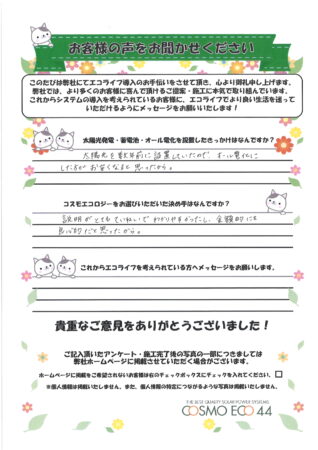 お客様の声をお聞かせください
このたびは弊社にてエコライフ導入のお手伝いをさせて頂き、心より御礼申し上げます。
弊社では、より多くのお客様に喜んで頂けるご提案・施工に本気で取り組んでいます。
これからシステムの導入を考えられているお客様に、エコライフでより良い生活を送って
いただけるようにメッセージをお願いします！
太陽光発電・蓄電池・オール電化を設置したきっかけはなんですか？
太陽光を数年前に設置していたので、オール電化に
した方がお安くなると思ったから。
コスモエコロジーをお選びいただいた決め手はなんですか？
説明がとてもていねいでわかりやすかったし、金額的にも
良心的だと思ったから。
これからエコライフを考えられている方へメッセージをお願いします。
貴重なご意見をありがとうございました！
ご記入頂いたアンケート・施工完了後の写真の一部につきましては
弊社ホームページに掲載させていただく場合がございます。
ホームページに掲載をご希望されないお客様は右のチェックボックスにチェックを入れてください。
※個人情報は掲載いたしません。また、個人情報の特定につながるような写真は掲載いたしません。
THE BEST QUALITY SOLAR POWER SYSTEMS
COSMO ECO 44